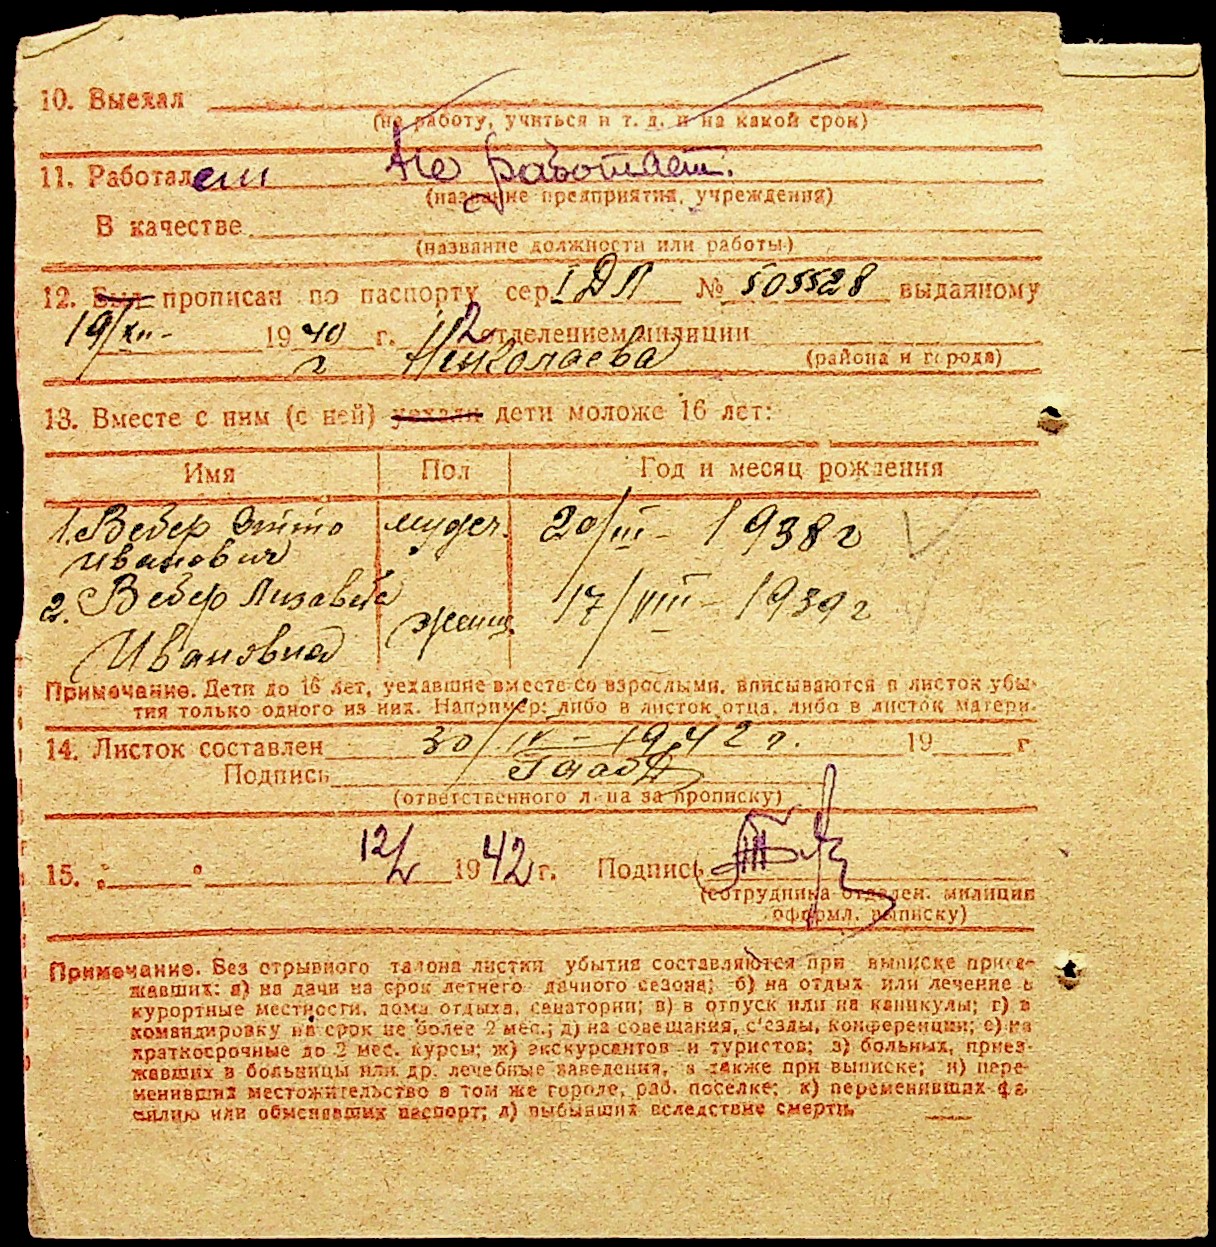 10. Выехал
(на работу, учиться и т. д. и на какой срок)
11. Работает Не работает.
(название предприятия, учреждения)
В качестве
(название должности или работы)
12. Был прописан по паспорту сер. I ДЛ № 505528 выданному
19/XII- 1940 г. 2 отделением милиции
г Николаева (района и города)
13. Вместе с ним (с ней) уехали дети моложе 16 лет:
Имя Пол Год и месяц рождения
1. Вебер Отто мужч. 20/III- 1938 г
Иванович
2. Вебер Лизавета женщ. 17/VIII- 1939 г
Ивановна
Примечание. Дети до 16 лет, уехавшие вместе со взрослыми, вписываются в листок убы-
тия только одного из них. Например: либо в листок отца, либо в листок матери.
14. Листок составлен 30/IV- 1942 г. 19 г
Подпись
(ответственного лица за прописку)
15. „ " 12/V 1942 г. Подпись
(сотрудника отделен. милиции
оформл. выписку)
Примечание. Без отрывного талона листки убытия составляются при выписке приез-
жавших: а) на дачи на срок летнего дачного сезона; б) на отдых или лечение в
курортные местности, дома отдыха, санатории; в) в отпуск или на каникулы; г) в
командировку на срок не более 2 мес.; д) на совещания, с'езды, конференции; е) на
краткосрочные до 2 мес. курсы; ж) экскурсантов и туристов; з) больных, приез-
жавших в больницы или др. лечебные заведения, а также при выписке; и) пере-
менивших местожительство в том же городе, раб. поселке; к) переменивших фа-
милию или обменявших паспорт; л) выбывших вследствие смерти.